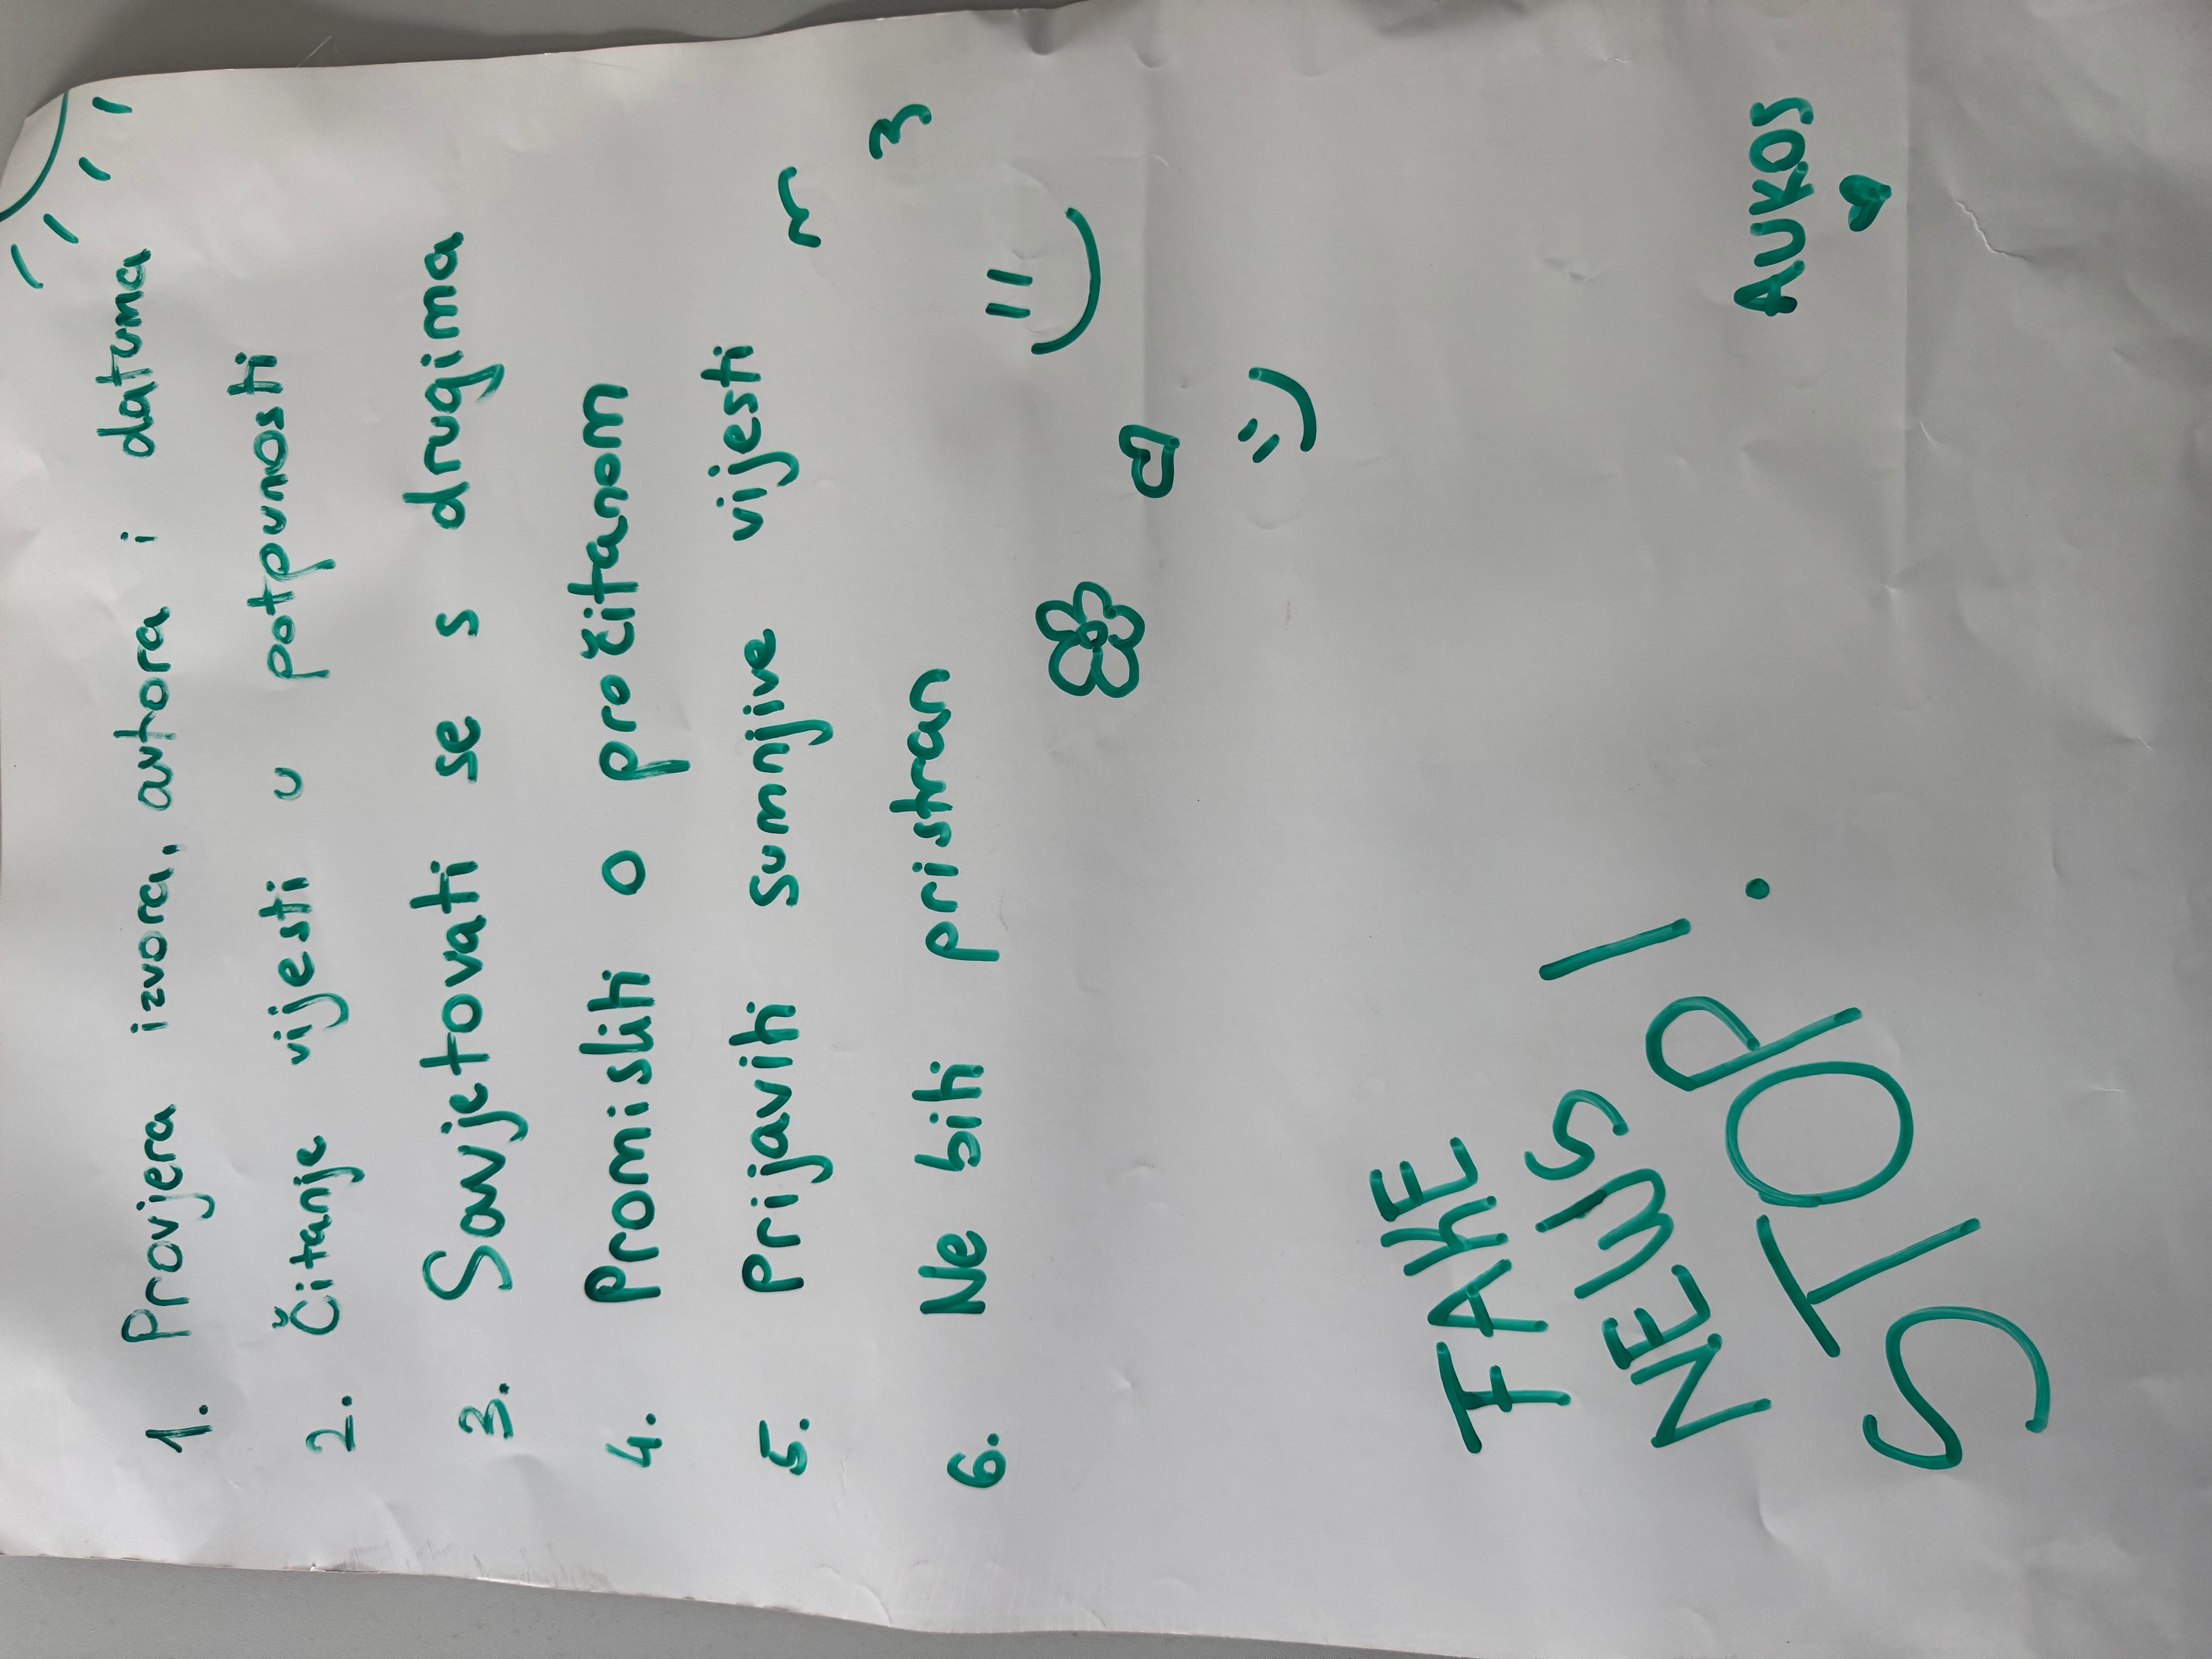 1. Provjera izvora, autora i datuma
2. Čitanje vijesti u potpunosti
3. Savjetovati se s drugima
4. Promisliti o pročitanom
5. Prijaviti sumnjive vijesti
6. Ne biti pristran
FAKE
NEWS
STOP!
AUKOS